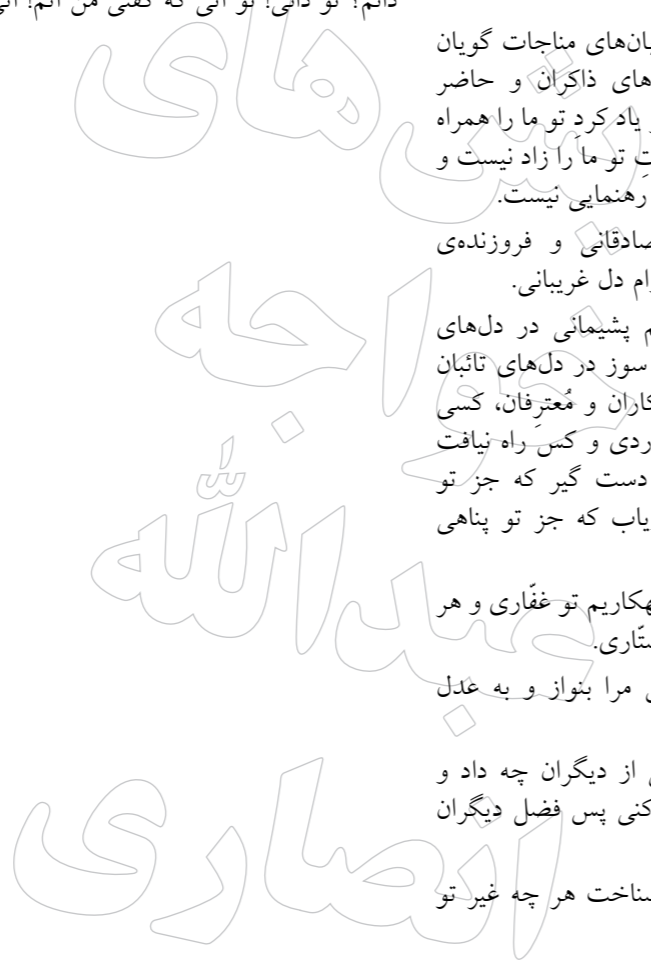 دانم؟ تو دانی! تو آنی که گفتی من آنم! آنی
زبان‌های مناجات گویان
های ذاکران و حاضر
یاد کردِ تو ما را همراه
تو ما را زاد نیست و
رهنمایی نیست.
صادقانی و فروزنده‌ی
دل غریبانی.
پشیمانی در دل‌های
سوز در دل‌های تائبان
کاران و مُعترِفان، کسی
ردی و کس راه نیافت
دست گیر که جز تو
یاب که جز تو پناهی
تو غفّاری و هر
ستّاری.
مرا بنواز و به عدل
از دیگران چه داد و
کنی پس فضل دیگران
هر چه غیر تو
خواجه
عبدالله
انصاری